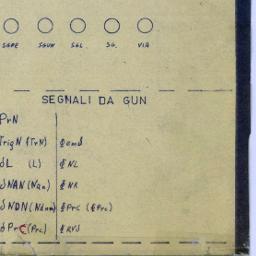 SGRE SGUN SGL SG. VIA
SEGNALI DA GUN
PrN
TrigN (TrN) ΦemS
SL (L) ΦNL
SNAN (Nan) ΦNR
SNDN (Ndnm) ΦPrc (ΦPrc)
SPrC (Prc) ΦRVS